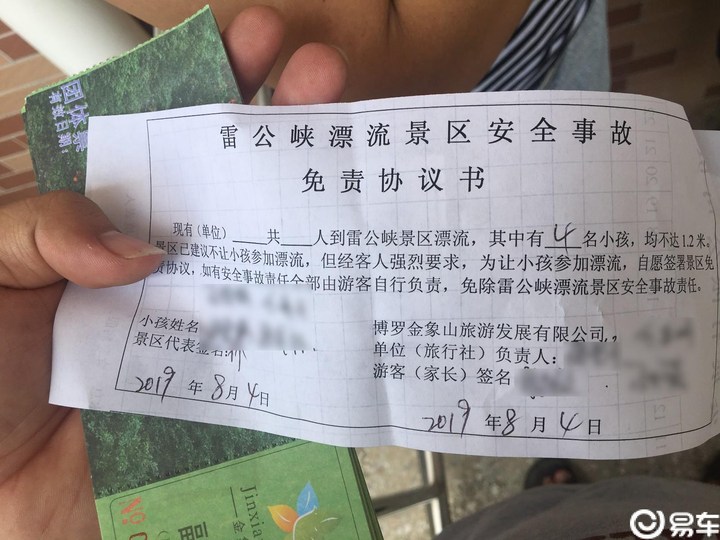 团体票
有效日期:
雷公峡漂流景区安全事故
免责协议书
现有（单位）____共____人到雷公峡景区漂流，其中有 4 名小孩，均不达1.2米。
景区已建议不让小孩参加漂流，但经客人强烈要求，为让小孩参加漂流，自愿签署景区免
责协议，如有安全事故责任全部由游客自行负责，免除雷公峡漂流景区安全事故责任。
小孩姓名
景区代表签名:
2019 年 8 月 4 日
博罗金象山旅游发展有限公司，。
单位（旅行社）负责人：
游客（家长）签名
2019 年 8 月 4 日
Jinxia
易车